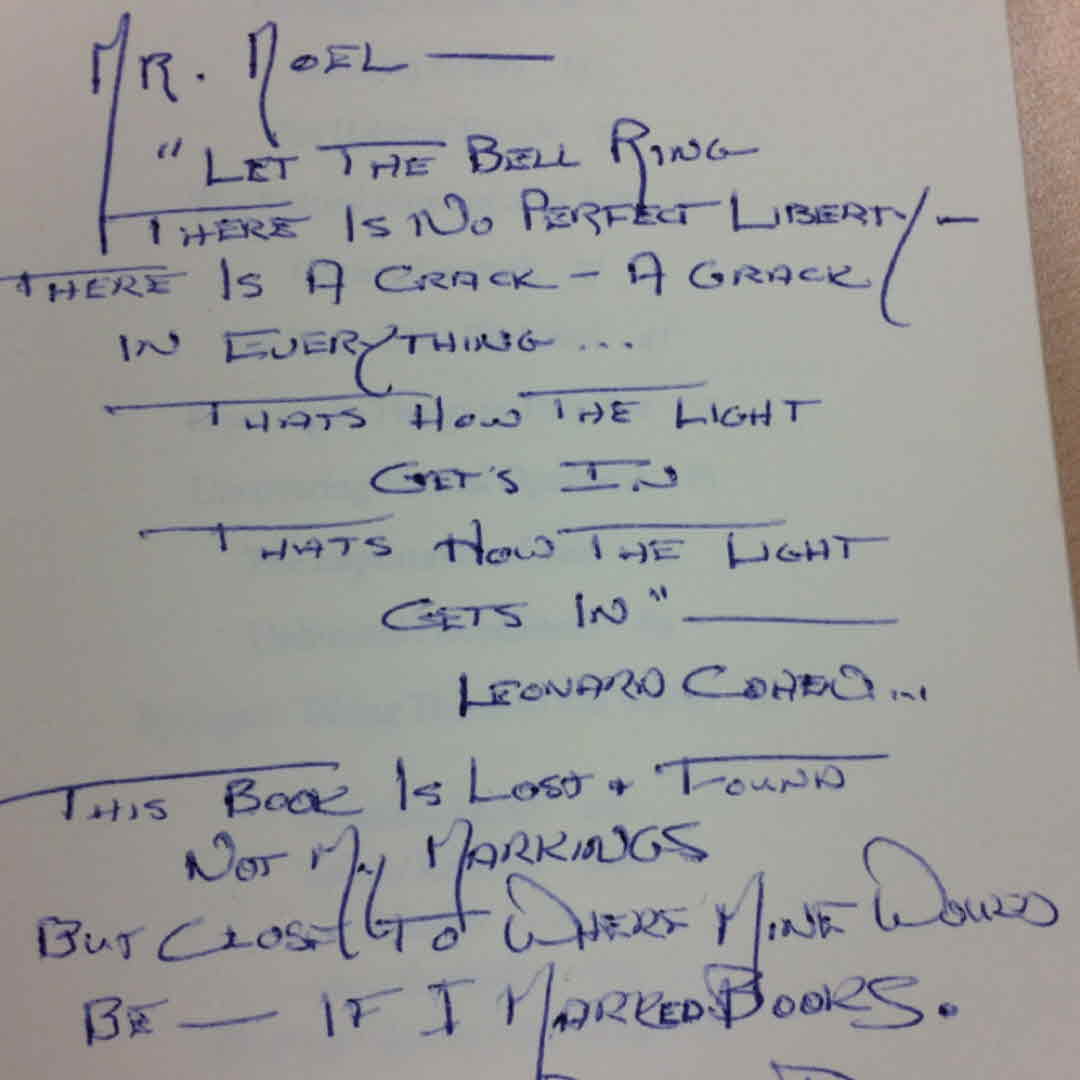 Mr. Noel —
"Let The Bell Ring
There Is No Perfect Liberty –
There Is A Crack – A Grack
in Everything ...
Thats How The Light
Get's In
Thats How The Light
Gets In" —
Leonard Cohen...
This Book Is Lost + Found
Not My Markings
But Close To Where Mine Would
Be — If I Marked Books.